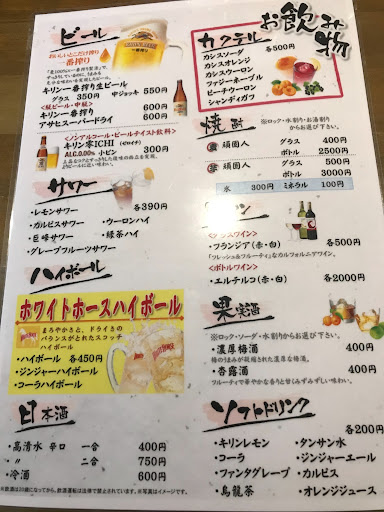 お飲み物
ビール
おいしいとこだけ搾り
一番搾り
キリン一番搾り生ビール
グラス 350円 中ジョッキ 550円
<瓶ビール・中瓶>
キリン一番搾り 600円
アサヒスーパードライ 600円
<ノンアルコール・ビールテイスト飲料>
キリン零ICHI(ゼロイチ)
ALC.0.00% 小ビン 300円
サワー
各390円
・レモンサワー
・カルピスサワー ・ウーロンハイ
・巨峰サワー ・緑茶ハイ
・グレープフルーツサワー
ハイボール
ホワイトホースハイボール
まろやかさと、ドライさの
バランスがとれたスコッチ
ハイボール
・ハイボール 各450円
・ジンジャーハイボール
・コーラハイボール
日本酒
・高清水 辛口 一合 400円
・ 〃 二合 750円
・冷酒 600円
カクテル 各500円
カシスソーダ
カシスオレンジ
カシスウーロン
ファジーネーブル
ピーチウーロン
シャンディガフ
焼酎
※ロック・水割り・お湯割り
からお選び下さい。
頑固人 グラス 400円
ボトル 2500円
頑固人 グラス 500円
ボトル 3000円
水 300円 ミネラル 100円
<グラスワイン>
・フランジア(赤・白) 各500円
フレッシュ&フルーティーなカルフォルニアワイン。
<ボトルワイン>
・エルチルコ(赤・白) 各2000円
果実酒
※ロック・ソーダ・水割りからお選び下さい。
・濃厚梅酒 400円
梅のうまみが凝縮された濃厚な梅酒。
・杏露酒 400円
フルーティで華やかな香りと甘くみずみずしい味わい。
ソフトドリンク
各200円
・キリンレモン ・タンサン水
・コーラ ・ジンジャーエール
・ファンタグレープ ・カルピス
・烏龍茶 ・オレンジジュース
※飲酒は20歳になってから。飲酒運転は法律で禁止されています。※写真はイメージです。